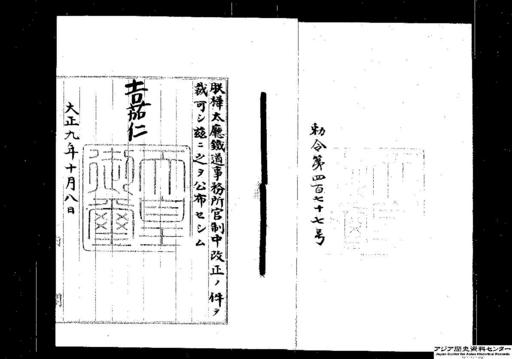 勅令第四百七十七号
朕樺太廳鐵道事務所官制中改正ノ件ヲ
裁可シ茲ニ之ヲ公布セシム
嘉仁
天皇御璽
大正九年十月八日
内閣
アジア歴史資料センター
Japan Center for Asian Historical Records